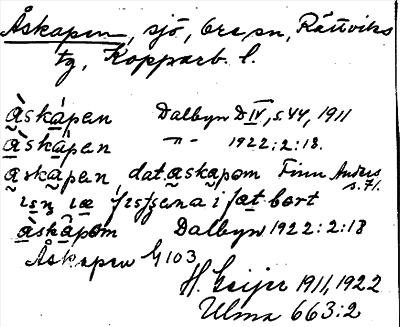 Åskapen, sjö, Ore sn, Rättviks
tg, Kopparb. l.
àskápen Dalbyn D IV, s. 44, 1911
àskápen -"- 1922:2:18.
àskápen, dat. askapom Finn Anders s. 71.
àskâpom Dalbyn 1922:2:18
Åskapen G 103
H. Geijer 1911, 1922
Ulma 663:2